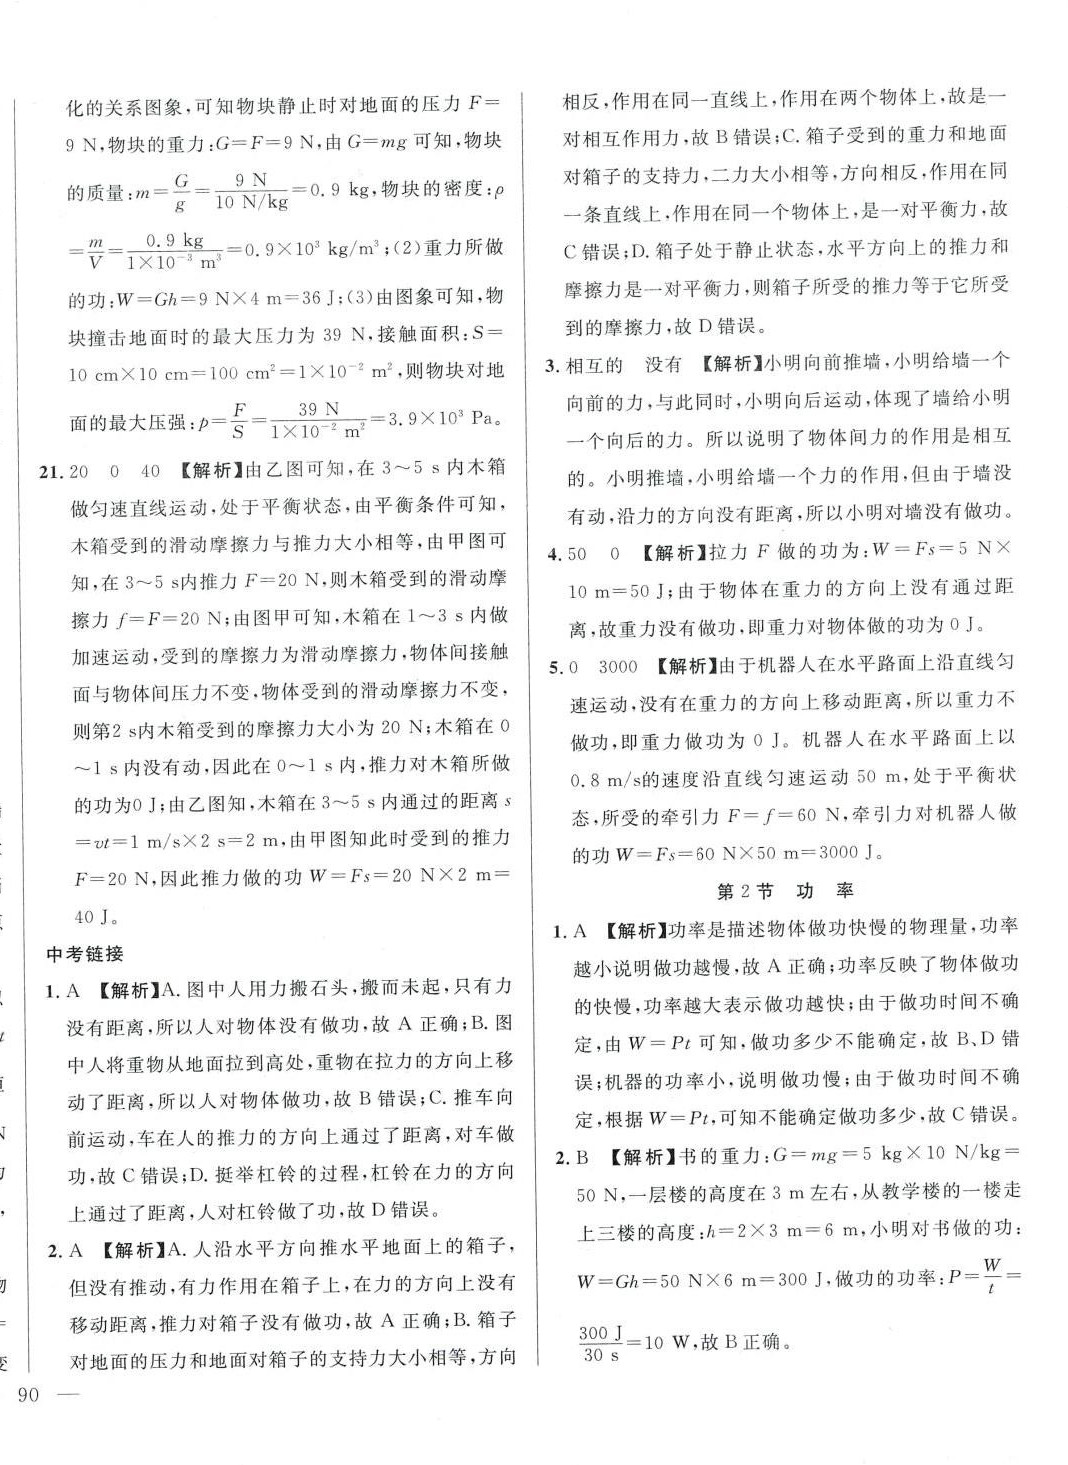 化的关系图象,可知物块静止时对地面的压力 F=
9 N,物块的重力:G=F=9 N,由 G=mg 可知,物块
的质量:m=G/g=9 N/10 N/kg=0.9 kg,物块的密度:ρ
=m/V=0.9 kg/1×10⁻³ m³=0.9×10³ kg/m³;(2)重力所做
的功:W=Gh=9 N×4 m=36 J;(3)由图象可知,物
块撞击地面时的最大压力为 39 N,接触面积:S=
10 cm×10 cm=100 cm²=1×10⁻² m²,则物块对地
面的最大压强:p=F/S=39 N/1×10⁻² m²=3.9×10³ Pa。
21. 20 0 40 【解析】由乙图可知,在 3～5 s 内木箱
做匀速直线运动,处于平衡状态,由平衡条件可知,
木箱受到的滑动摩擦力与推力大小相等,由甲图可
知,在 3～5 s内推力 F=20 N,则木箱受到的滑动摩
擦力 f=F=20 N;由图甲可知,木箱在 1～3 s 内做
加速运动,受到的摩擦力为滑动摩擦力,物体间接触
面与物体间压力不变,物体受到的滑动摩擦力不变,
则第2 s内木箱受到的摩擦力大小为 20 N;木箱在 0
～1 s 内没有动,因此在 0～1 s 内,推力对木箱所做
的功为0 J;由乙图知,木箱在 3～5 s 内通过的距离 s
=vt=1 m/s×2 s=2 m,由甲图知此时受到的推力
F=20 N,因此推力做的功 W=Fs=20 N×2 m=
40 J。
中考链接
1. A 【解析】A. 图中人用力搬石头,搬而未起,只有力
没有距离,所以人对物体没有做功,故 A 正确;B. 图
中人将重物从地面拉到高处,重物在拉力的方向上移
动了距离,所以人对物体做功,故 B 错误;C. 推车向
前运动,车在人的推力的方向上通过了距离,对车做
功,故 C 错误;D. 挺举杠铃的过程,杠铃在力的方向
上通过了距离,人对杠铃做了功,故 D 错误。
2. A 【解析】A. 人沿水平方向推水平地面上的箱子,
但没有推动,有力作用在箱子上,在力的方向上没有
移动距离,推力对箱子没有做功,故 A 正确;B. 箱子
对地面的压力和地面对箱子的支持力大小相等,方向
90 —
相反,作用在同一直线上,作用在两个物体上,故是一
对相互作用力,故 B 错误;C. 箱子受到的重力和地面
对箱子的支持力,二力大小相等,方向相反,作用在同
一条直线上,作用在同一个物体上,是一对平衡力,故
C 错误;D. 箱子处于静止状态,水平方向上的推力和
摩擦力是一对平衡力,则箱子所受的推力等于它所受
到的摩擦力,故 D 错误。
3. 相互的 没有 【解析】小明向前推墙,小明给墙一个
向前的力,与此同时,小明向后运动,体现了墙给小明
一个向后的力。所以说明了物体间力的作用是相互
的。小明推墙,小明给墙一个力的作用,但由于墙没
有动,沿力的方向没有距离,所以小明对墙没有做功。
4. 50 0 【解析】拉力 F 做的功为:W=Fs=5 N×
10 m=50 J;由于物体在重力的方向上没有通过距
离,故重力没有做功,即重力对物体做的功为 0 J。
5. 0 3000 【解析】由于机器人在水平路面上沿直线匀
速运动,没有在重力的方向上移动距离,所以重力不
做功,即重力做功为 0 J。机器人在水平路面上以
0.8 m/s的速度沿直线匀速运动 50 m,处于平衡状
态,所受的牵引力 F=f=60 N,牵引力对机器人做
的功 W=Fs=60 N×50 m=3000 J。
第2节 功 率
1. A 【解析】功率是描述物体做功快慢的物理量,功率
越小说明做功越慢,故 A 正确;功率反映了物体做功
的快慢,功率越大表示做功越快;由于做功时间不确
定,由 W=Pt 可知,做功多少不能确定,故 B、D 错
误;机器的功率小,说明做功慢;由于做功时间不确
定,根据 W=Pt,可知不能确定做功多少,故 C 错误。
2. B 【解析】书的重力:G=mg=5 kg×10 N/kg=
50 N,一层楼的高度在 3 m 左右,从教学楼的一楼走
上三楼的高度:h=2×3 m=6 m,小明对书做的功:
W=Gh=50 N×6 m=300 J,做功的功率:P=W/t=
300 J/30 s=10 W,故 B 正确。